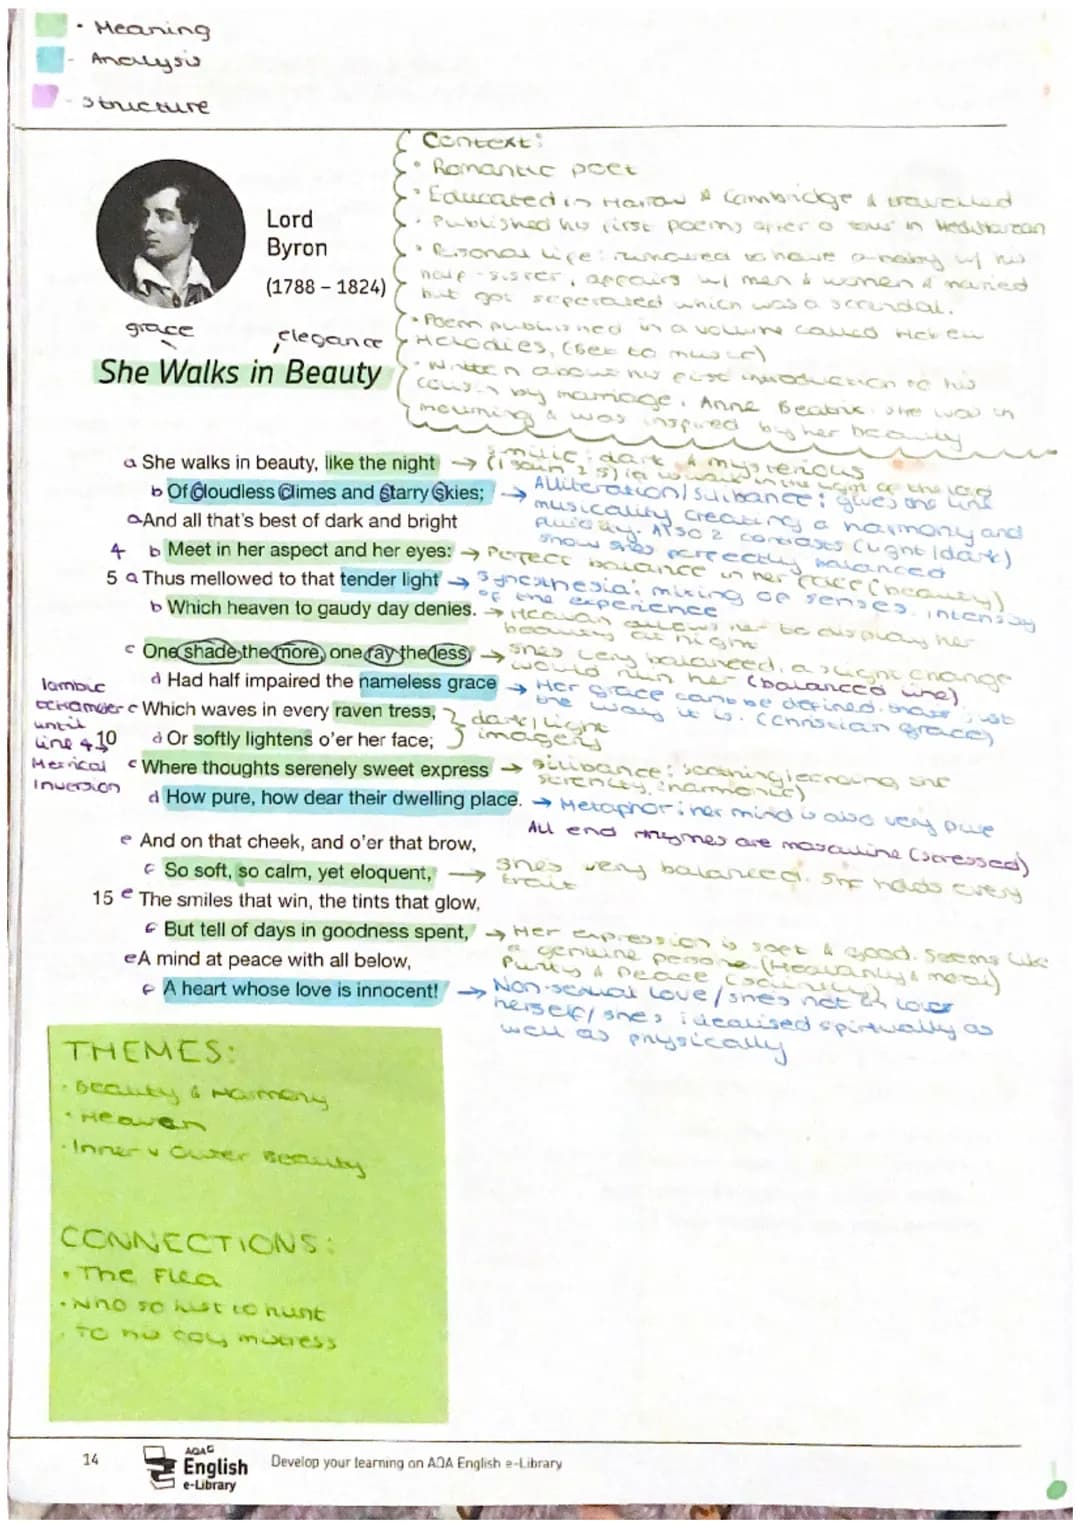 · Meaning
- Analysis
- Structure
Context:
· Romantic poet
· Educated in Harrow & Cambridge & travelled
· Published his first poems after a tour in Mediterranean
· Personal life: rumoured to have a baby w/ his
half-sister, affairs w/ men & women & maried
but got seperated which was a scandal.
· Poem published in a volume called Hebrew
Melodies, (set to music)
· Written about his first introduction to his
cousin by marriage, Anne Beatrix. She was in
mourning & was inspired by her beauty
Lord
Byron
(1788 – 1824)
grace
elegance
She Walks in Beauty
a She walks in beauty, like the night → simile: dark & mysterious
(1 John 2 5) is walk in the light of the lord
b Of Cloudless Climes and Starry Skies; → Alliteration/sibance: gives the line
musicality creating a harmony and
fluidity. Also 2 contrasts (light/dark)
show shes perfectly balanced
a And all that's best of dark and bright
4 b Meet in her aspect and her eyes: → Perfect balance in her face (beauty)
5 a Thus mellowed to that tender light → Synesthesia: mixing of senses. intensity
of the experience
b Which heaven to gaudy day denies. → Heavan allows her to display her
beauty at night
c One shade the more, one ray the less, → shes very balanced, a slight change
would ruin her (balanced line)
d Had half impaired the nameless grace → Her grace cannot be defined. thats just
the way it is. (Christian grace)
Iambic
tetrameter
until
line 4
Metrical
Inversion
c Which waves in every raven tress, } dark/light
10 d Or softly lightens o'er her face; } imagery
c Where thoughts serenely sweet express → Sibance: soothing
serenity, harmonic)
d How pure, how dear their dwelling place. → Metaphor: her mind is also very pure
All end rhymes are masculine (stressed)
e And on that cheek, and o'er that brow,
f So soft, so calm, yet eloquent, → shes very balanced. She holds every
trait
15 e The smiles that win, the tints that glow,
f But tell of days in goodness spent, → Her expression is soft & good. Seems like
a genuine persona. (Heavanly & moral)
e A mind at peace with all below,
Purity & peace
f A heart whose love is innocent! → Non-sexual love/shes not in love
herself/shes idealised spirtually as
well as physically
THEMES:
· Beauty & Harmony
· Heaven
· Inner v Outer Beauty
CONNECTIONS:
· The Flea
· Who so list to hunt
· To his coy mistress
14
AQA
English
e-Library
Develop your learning on AQA English e-Library